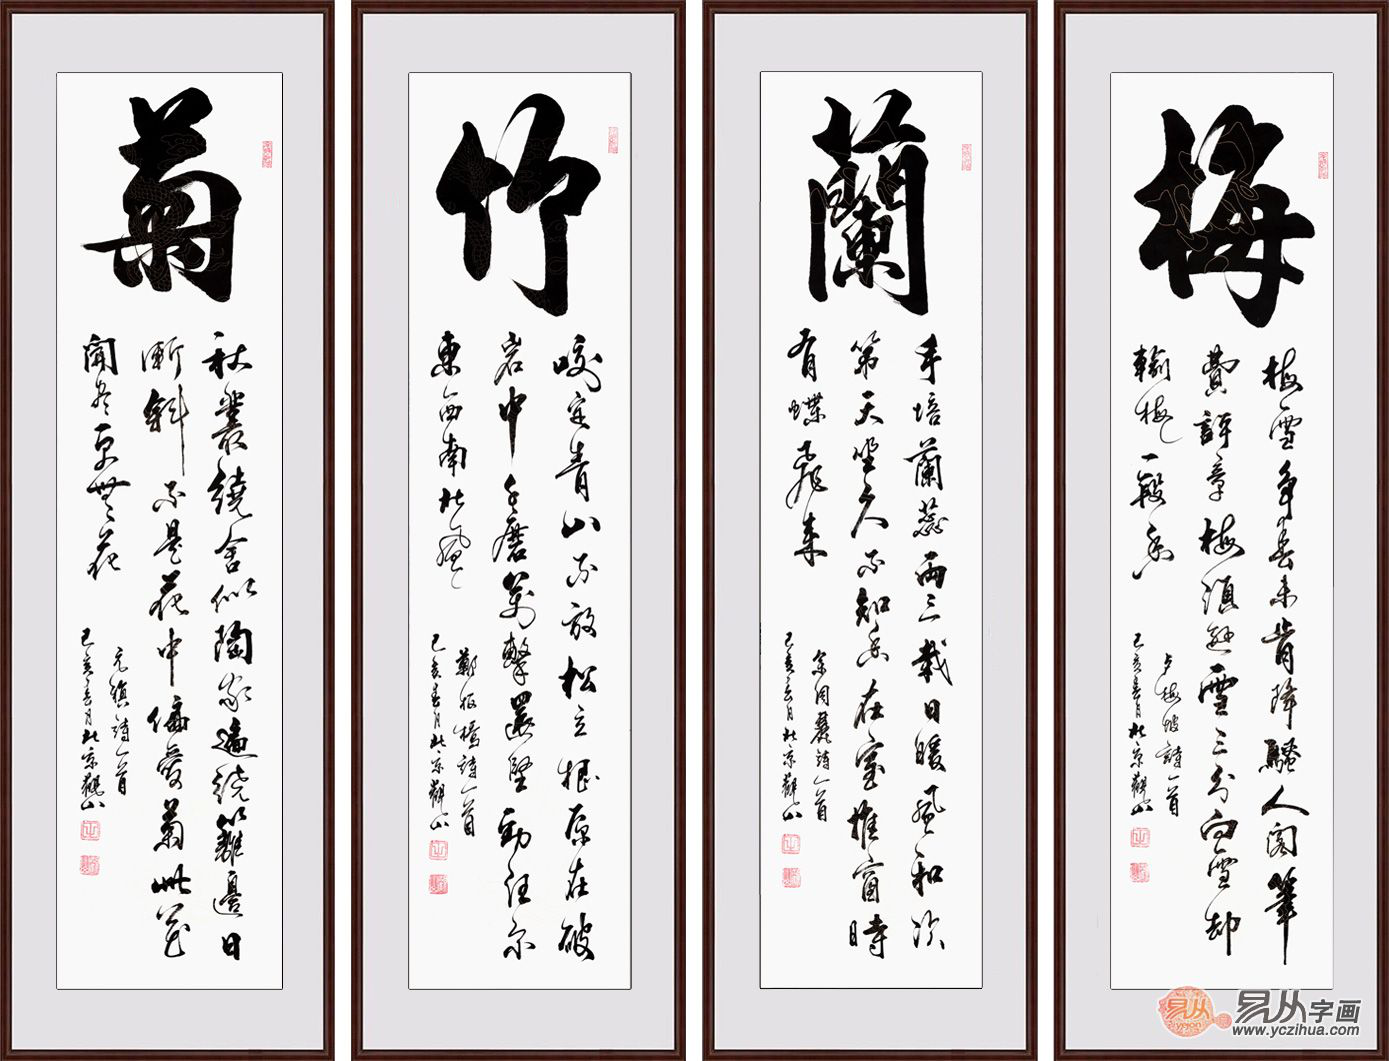 梅
梅雪争春未肯降騷人閣筆
費評章梅須遜雪三分白雪却
輸梅一段香
卢梅坡詩一首
己亥春月北京觀山
蘭
手培蘭蕊兩三載日暖風和次
第天坐久不知香在室推窗時
有蝶飛来
余同麓詩一首
己亥春月北京觀山
竹
咬定青山不放松立根原在破
岩中千磨萬擊還堅勁任尔
東西南北風
鄭板橋詩一首
己亥春月北京觀山
菊
秋叢繞舍似陶家遍繞籬邊日
漸斜不是花中偏愛菊此花
開尽更無花
元稹詩一首
己亥春月北京觀山
易从
yicjon
易从字画
www.yczihua.com